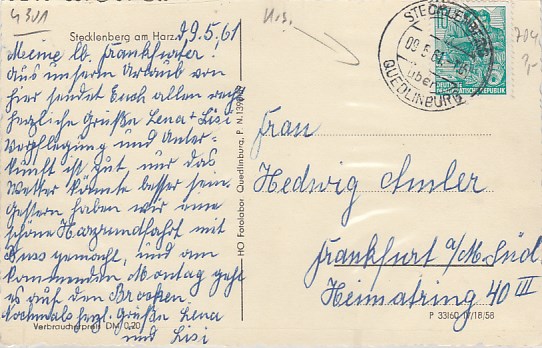 4301
Stecklenberg am Harz
d 9.5.61
Meine lb. Frankfurter!
Aus unserm Urlaub von
hier sendet Euch allen recht
herzliche Grüße Lena + Lisi
Verpflegung und Unter-
kunft ist gut, nur das
Wetter könnte besser sein.
Gestern haben wir eine
schöne Harzrundfahrt mit
Bus gemacht, und am
kommenden Montag geht
es auf den Brocken.
Nochmals herzl. Grüße Lena
und Lisi
Verbraucherpreis DM 0,20
HO Fotolabor Quedlinburg, P. N.
STECKLENBERG
über
QUEDLINBURG
DEUTSCHE DEMOKRATISCHE REPUBLIK
Frau
Hedwig Amler
Frankfurt a/M. Süd
Heimatring 40 III
P 33160 IV/18/58